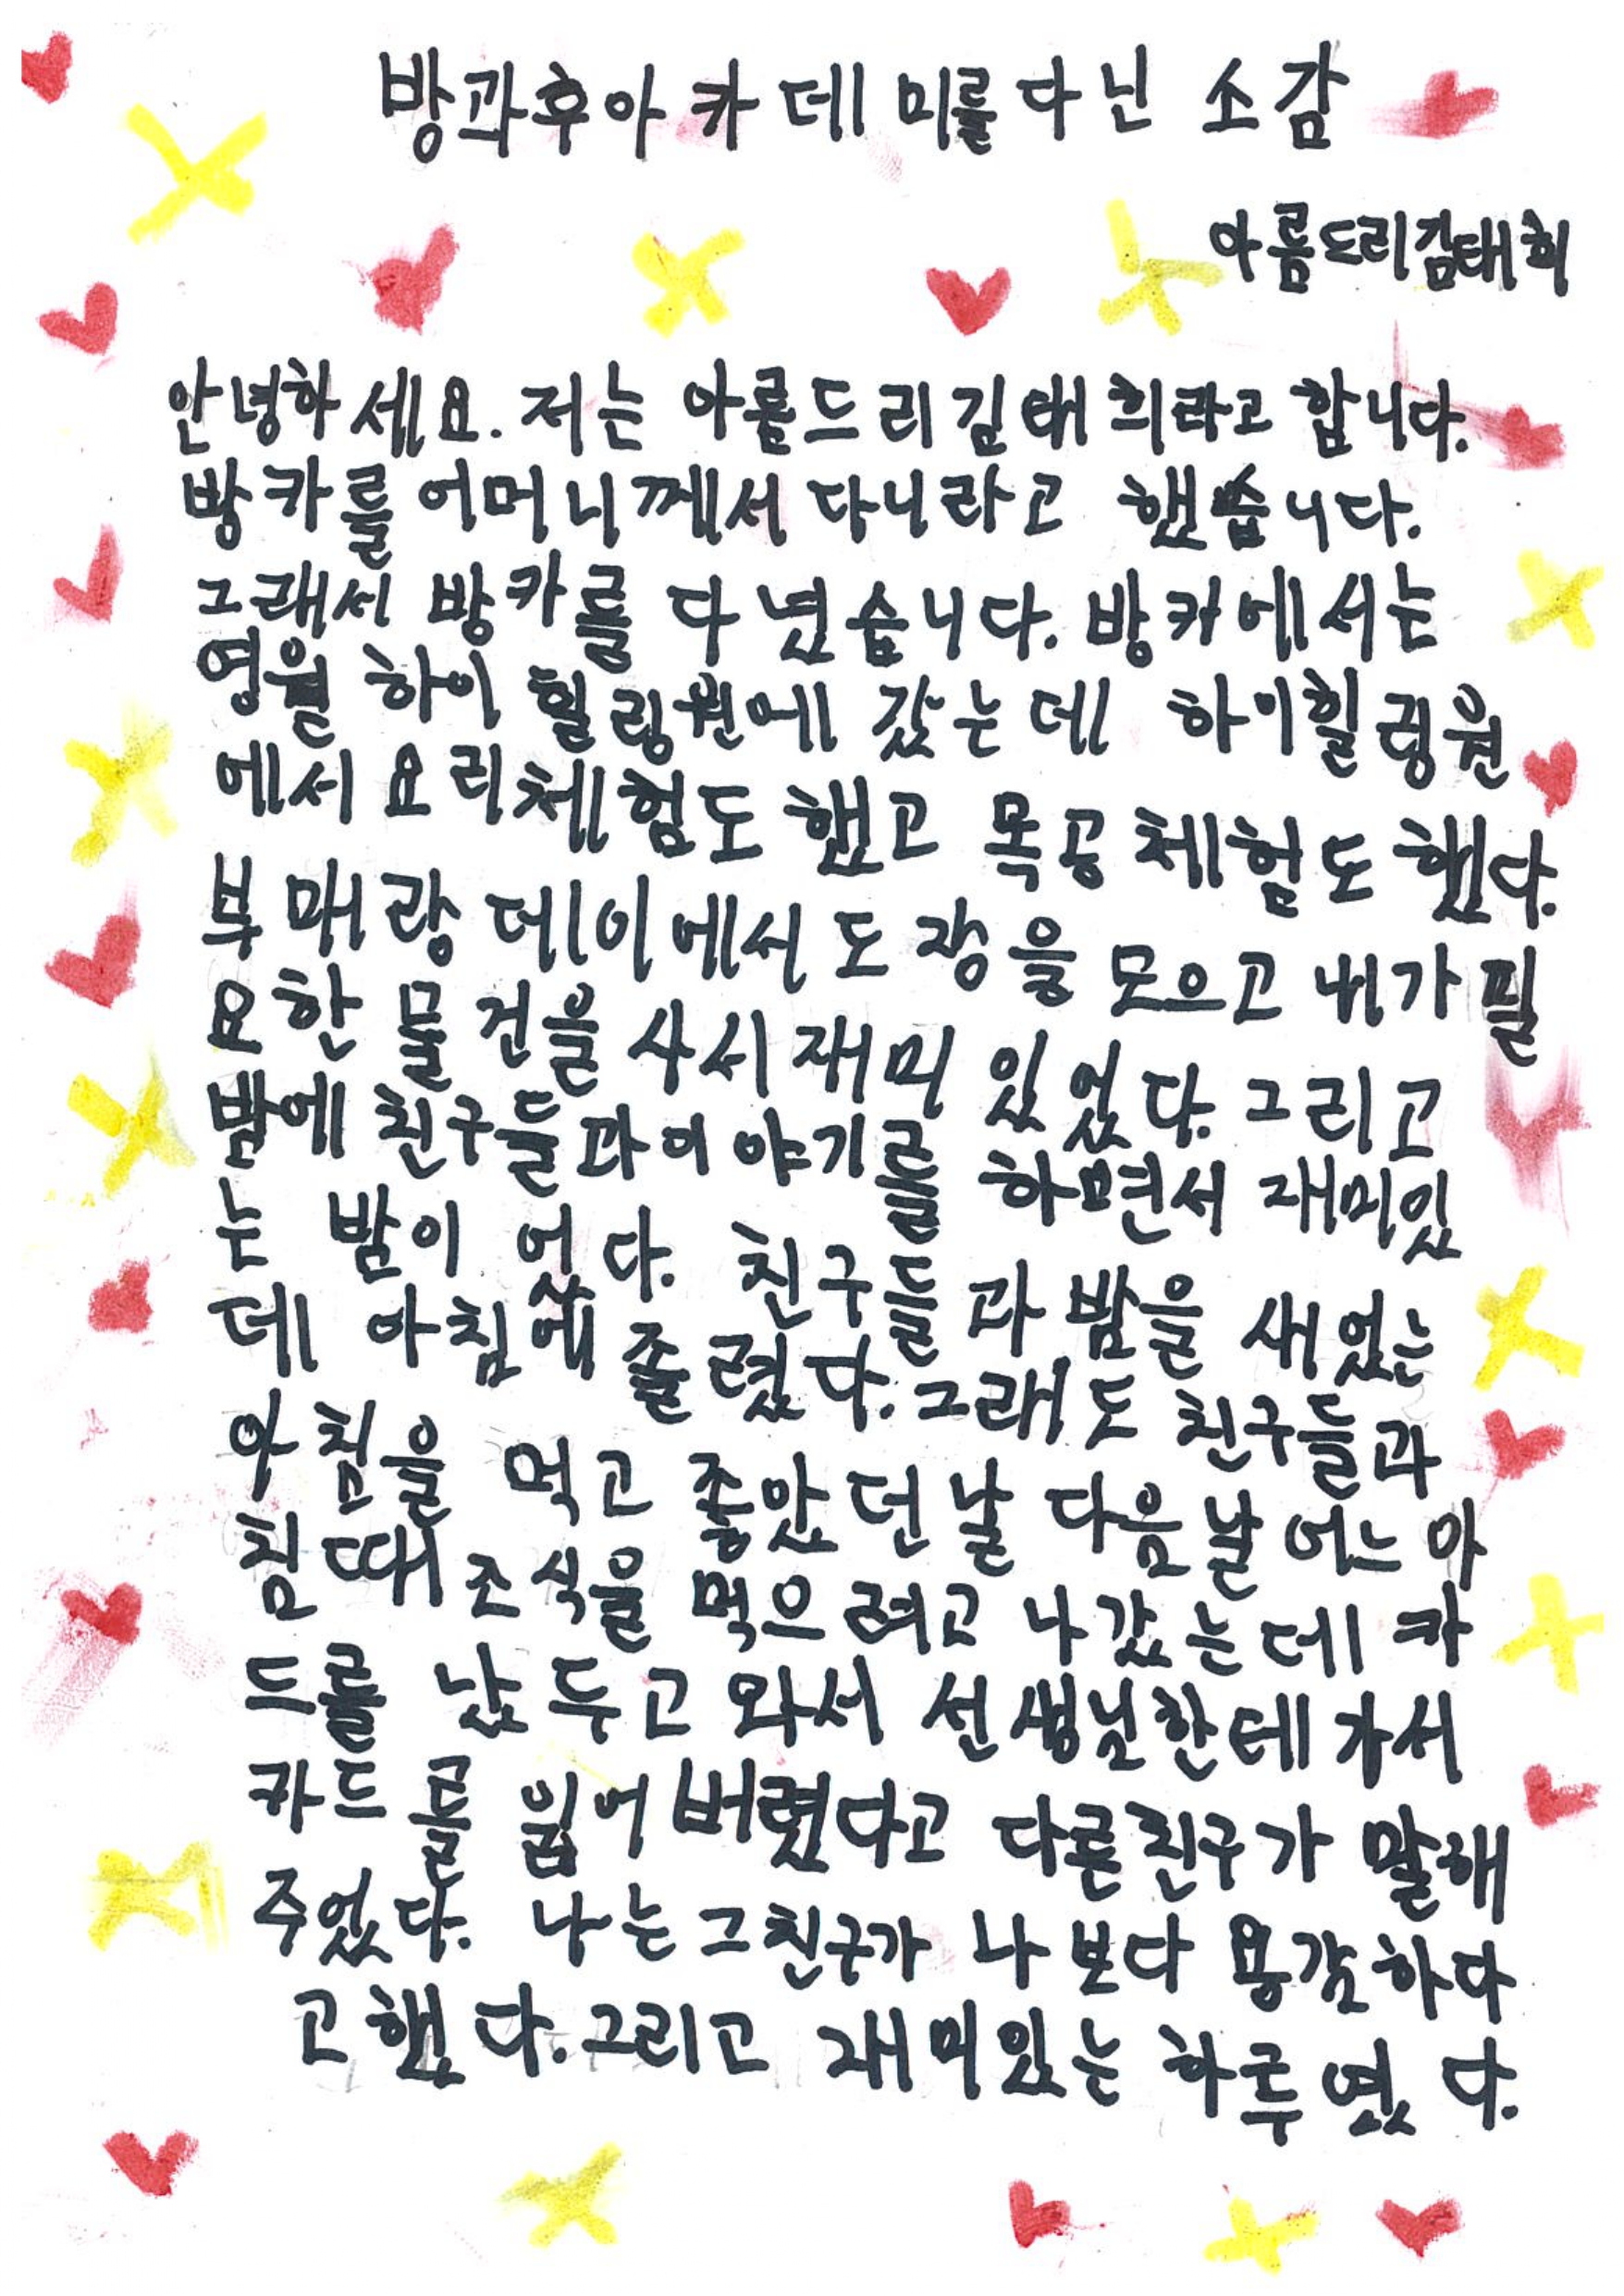 방과후아카데미를다닌 소감
아름드리김태희
안녕하세요. 저는 아름드리김태희라고 합니다.
방카를 어머니께서 다니라고 했습니다.
그래서 방카를 다녔습니다. 방카에서는
영월 하이 힐링원에 갔는데 하이힐링원
에서 요리체험도 했고 목공체험도 했다.
부매랑 데이에서 도장을 모으고 내가 필
요한 물건을 사서 재미 있었다. 그리고
밤에 친구들과이야기를 하면서 재미있
는 밤이 었다. 친구들과 밤을 새었는
데 아침에 졸렸다. 그래도 친구들과
아침을 먹고 좋았던날 다음날 어느 아
침때 조식을 먹으려고 나갔는데 카
드를 놨두고 와서 선생님한테가서
카드를 잃어버렸다고 다른친구가 말해
주었다. 나는 그친구가 나보다 용감하다
고했다. 그리고 재미있는 하루였다.